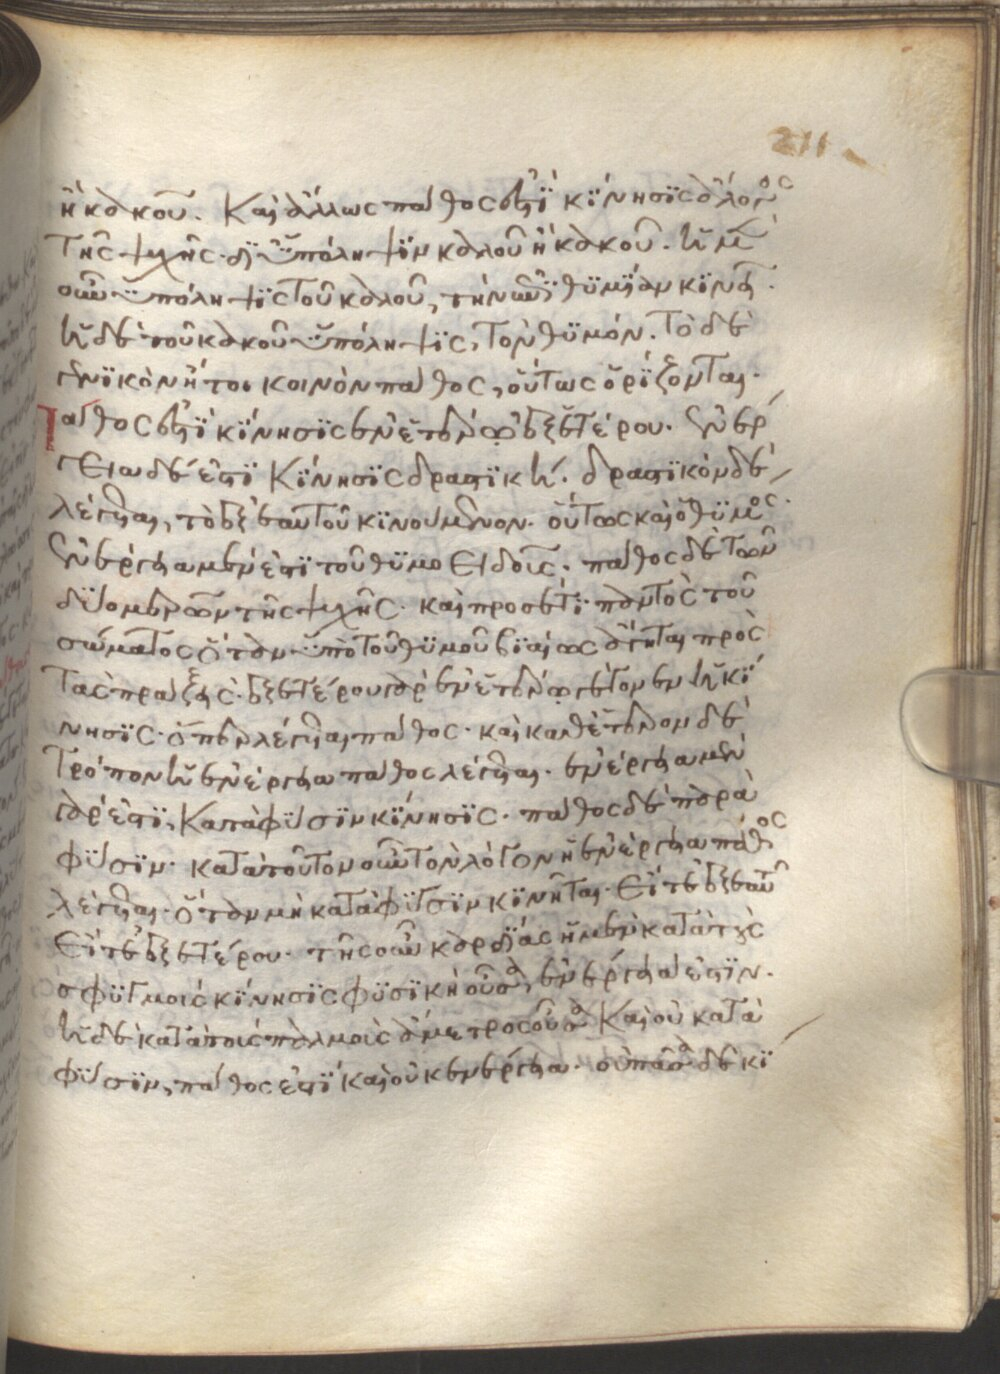 211
ἢ κακοῦ. Καὶ ἄλλως πάθος ἐστὶ κίνησις ἄλογος
τῆς ψυχῆς· δι' ὑπόληψιν καλοῦ ἢ κακοῦ. ἡ μὲν
οὖν ὑπόληψις τοῦ καλοῦ, τὴν ἐπιθυμίαν κινεῖ.
ἡ δὲ τοῦ κακοῦ ὑπόληψις, τὸν θυμόν. Τὸ δὲ
γενικὸν ἤτοι κοινὸν πάθος, οὕτως ὁρίζονται.
Πάθος ἐστὶ κίνησις ἐν ἑτέρῳ ἐξ ἑτέρου. ἐνέρ
γεια δέ ἐστι κίνησις δραστική. δραστικὸν δὲ
λέγεται, τὸ ἐξ ἑαυτοῦ κινούμενον. οὕτως καὶ ὁ θυμὸς.
ἐνέργεια μέν ἐστι τοῦ θυμοειδοῦς. πάθος δὲ τῶν
δύο μερῶν τῆς ψυχῆς. καὶ προσέτι παντὸς τοῦ
σώματος ὅταν ὑπὸ τοῦ θυμοῦ βιαίως ἄγηται πρὸς
τὰς πράξεις. ἐξ ἑτέρου γὰρ ἐν ἑτέρῳ γέγονεν ἡ κί
νησις. ὅπερ λέγεται πάθος. καὶ καθ' ἕτερον δὲ
τρόπον ἡ ἐνέργεια πάθος λέγεται. ἐνέργεια μὲν
γάρ ἐστι, κατὰ φύσιν κίνησις. πάθος δὲ παρὰ
φύσιν. κατὰ τοῦτον οὖν τὸν λόγον ἡ ἐνέργεια πάθος
λέγεται. ὅταν μὴ κατὰ φύσιν κινῆται. εἴτε ἐξ ἑαυτοῦ
εἴτε ἐξ ἑτέρου. τῆς οὖν καρδίας ἡ μὲν κατὰ τοὺς
σφυγμοὺς κίνησις φυσικὴ οὖσα, ἐνέργειά ἐστιν.
ἡ δὲ κατὰ τοὺς παλμοὺς ἄμετρος οὖσα καὶ οὐ κατὰ
φύσιν, πάθος ἐστὶ καὶ οὐκ ἐνέργεια. οὐ πᾶσα δὲ κί